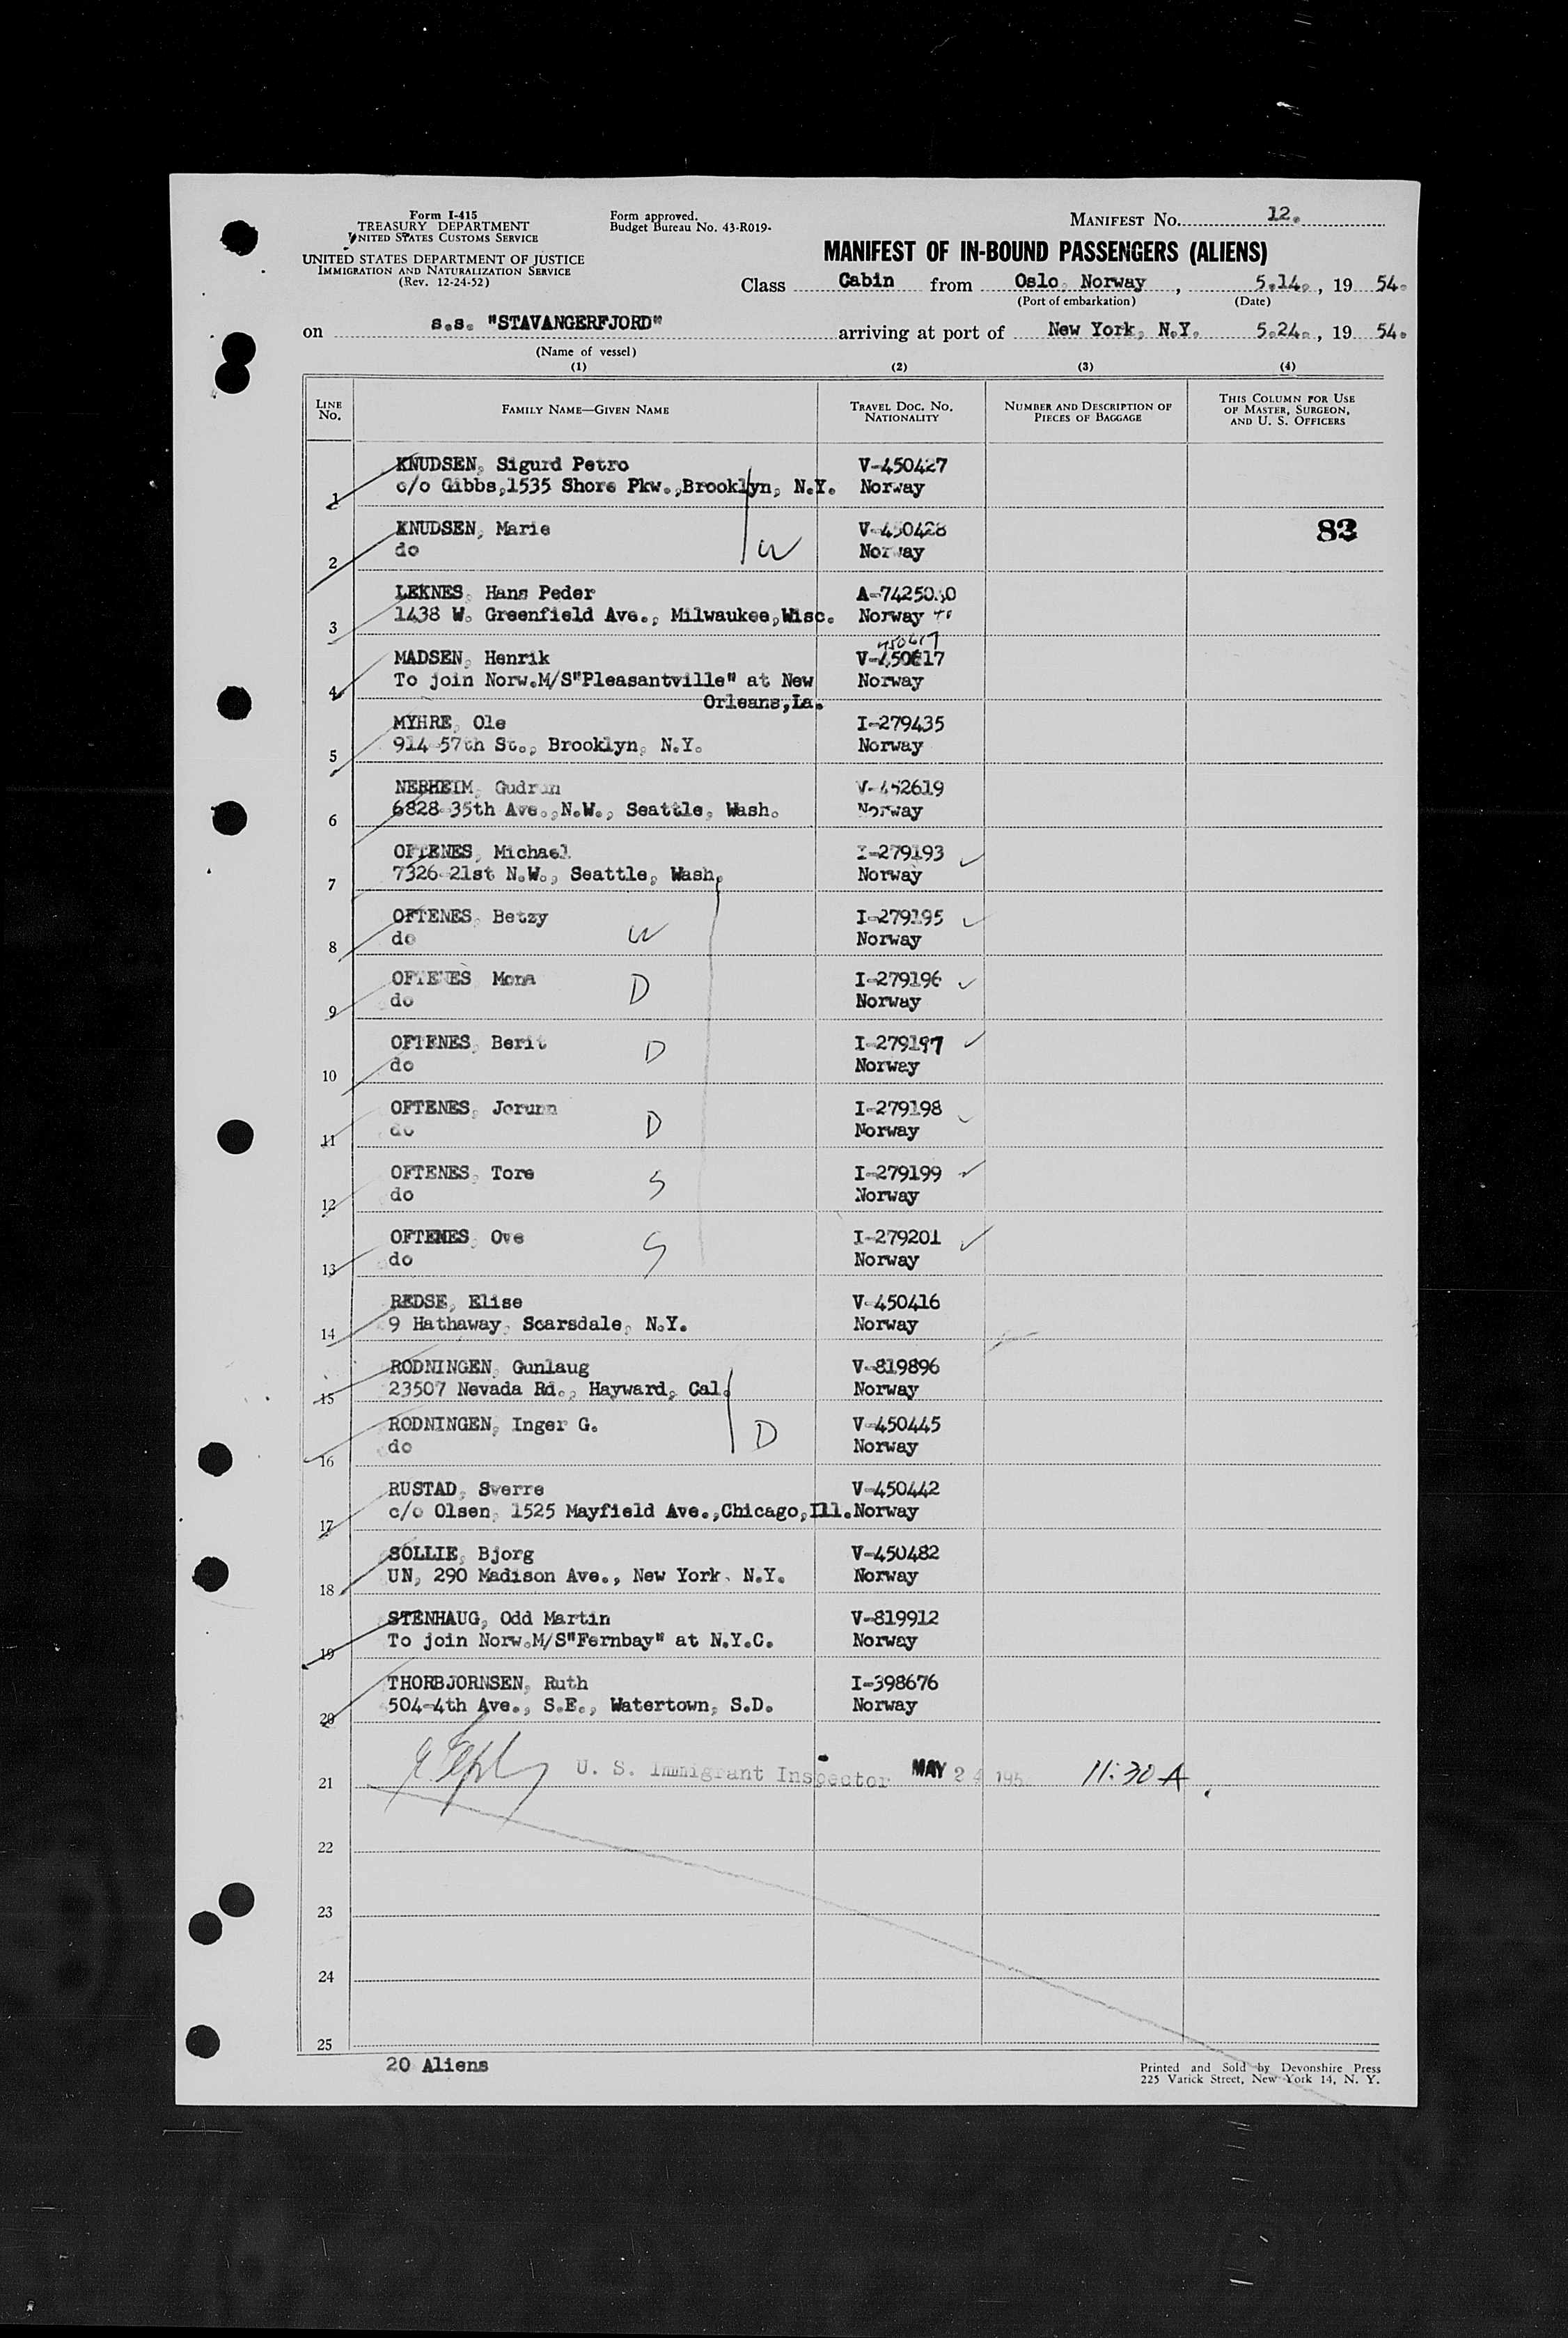 Form I-415
TREASURY DEPARTMENT
UNITED STATES CUSTOMS SERVICE
UNITED STATES DEPARTMENT OF JUSTICE
IMMIGRATION AND NATURALIZATION SERVICE
(Rev. 12-24-52)
Form approved.
Budget Bureau No. 43-R019-
MANIFEST No. 12.
MANIFEST OF IN-BOUND PASSENGERS (ALIENS)
Class Cabin from Oslo, Norway, 5.14., 19 54.
(Port of embarkation) (Date)
on s.s. "STAVANGERFJORD" arriving at port of New York, N.Y. 5.24., 19 54.
(Name of vessel)
(1) (2) (3) (4)
LINE No. FAMILY NAME—GIVEN NAME TRAVEL DOC. No. NATIONALITY NUMBER AND DESCRIPTION OF PIECES OF BAGGAGE THIS COLUMN FOR USE OF MASTER, SURGEON, AND U. S. OFFICERS
KNUDSEN, Sigurd Petro V-450427
1 c/o Gibbs,1535 Shore Pkw.,Brooklyn, N.Y. Norway
KNUDSEN, Marie V-450428 83
2 do W Norway
LEKNES, Hans Peder
3 1438 W. Greenfield Ave., Milwaukee,Wisc. Norway
450617
MADSEN, Henrik V-450617
4 To join Norw.M/S"Pleasantville" at New Norway
Orleans,La.
MYHRE, Ole I-279435
5 914-57th St., Brooklyn, N.Y. Norway
NERHEIM, Gudrun V-452619
6 6828-35th Ave.,N.W., Seattle, Wash. Norway
OFTENES, Michael I-279193
7 7326-21st N.W., Seattle, Wash. Norway
OFTENES, Betzy I-279195
8 do W Norway
OFTENES, Mona I-279196
9 do D Norway
OFTENES, Berit I-279197
10 do D Norway
OFTENES, Jorunn I-279198
11 do D Norway
OFTENES, Tore I-279199
12 do S Norway
OFTENES, Ove I-279201
13 do S Norway
REDSE, Elise V-450416
14 9 Hathaway, Scarsdale, N.Y. Norway
RODNINGEN, Gunlaug V-819896
15 23507 Nevada Rd., Hayward, Cal. Norway
RODNINGEN, Inger G. V-450445
16 do D Norway
RUSTAD, Sverre V-450442
17 c/o Olsen, 1525 Mayfield Ave.,Chicago,Ill. Norway
SOLLIE, Bjorg V-450482
18 UN, 290 Madison Ave., New York, N.Y. Norway
STENHAUG, Odd Martin V-819912
19 To join Norw.M/S"Fernbay" at N.Y.C. Norway
THORBJORNSEN, Ruth I-398676
20 504-4th Ave., S.E., Watertown, S.D. Norway
21 U. S. Immigrant Inspector MAY 24 195 11:30 A
22
23
24
25
20 Aliens
Printed and Sold by Devonshire Press
225 Varick Street, New York 14, N. Y.